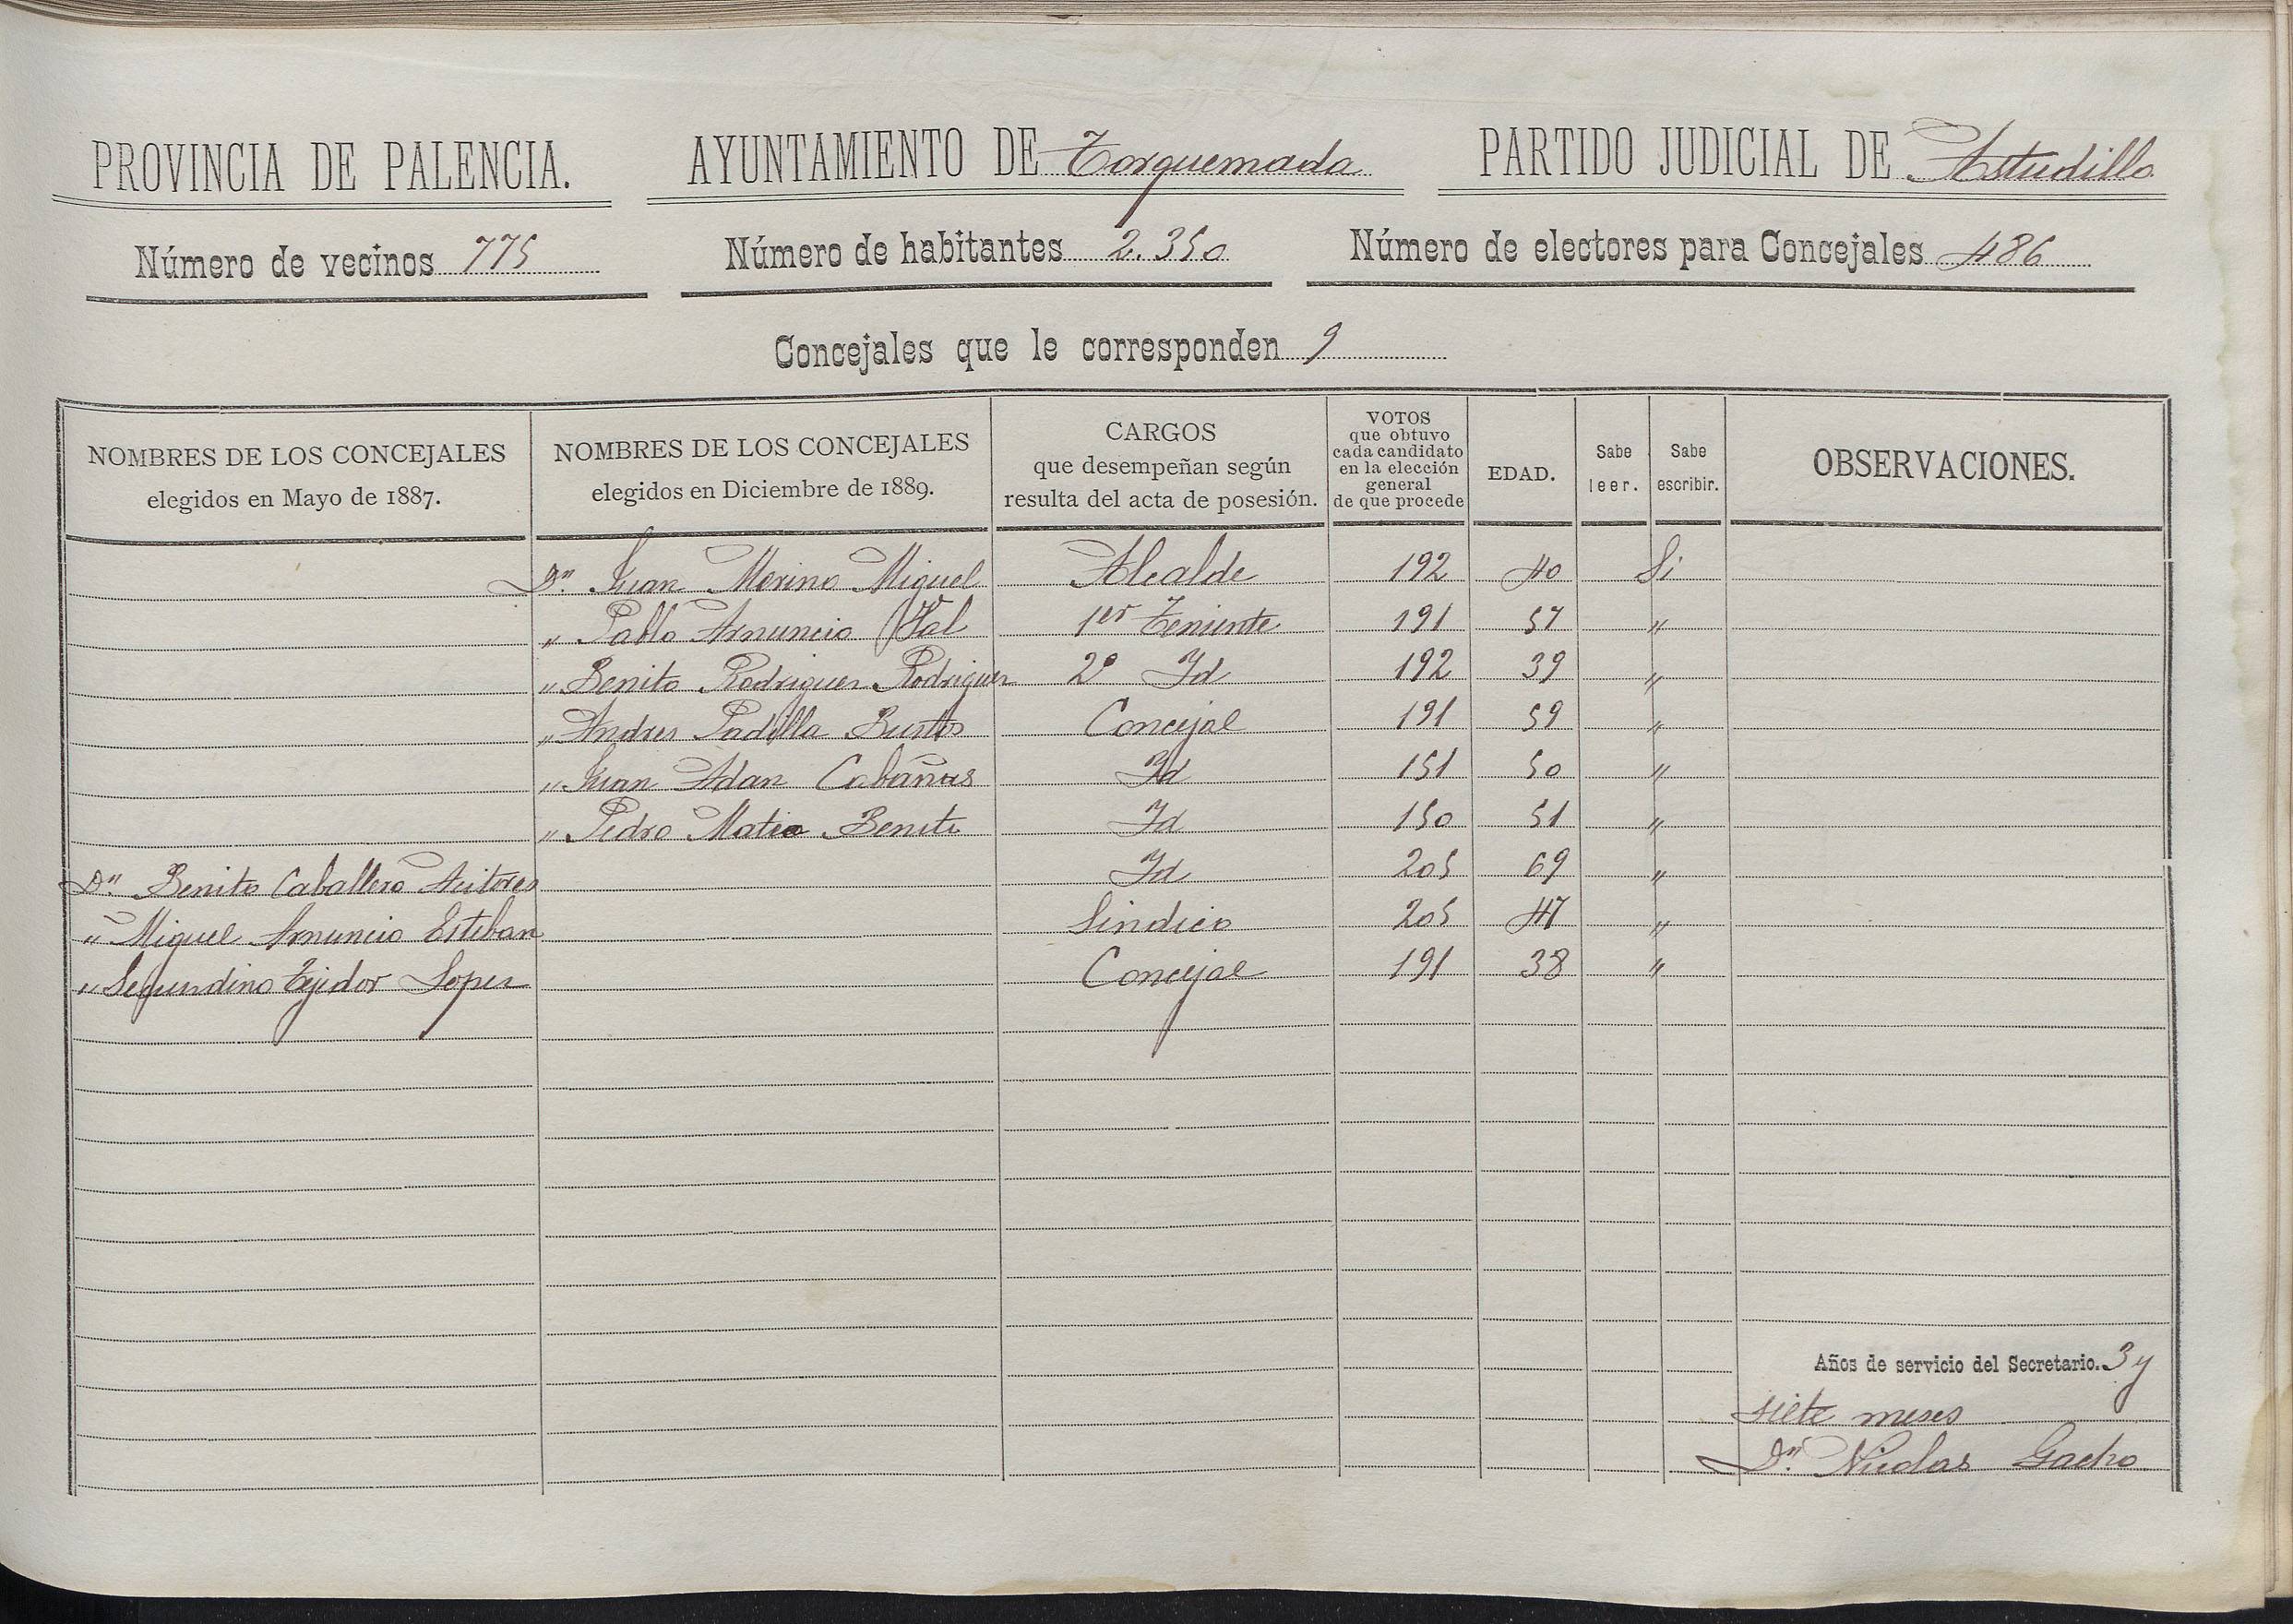 PROVINCIA DE PALENCIA. AYUNTAMIENTO DE Torquemada PARTIDO JUDICIAL DE Astudillo
Número de vecinos 775 Número de habitantes 2.350 Número de electores para Concejales 486
Concejales que le corresponden 9
NOMBRES DE LOS CONCEJALES elegidos en Mayo de 1887. NOMBRES DE LOS CONCEJALES elegidos en Diciembre de 1889. CARGOS que desempeñan según resulta del acta de posesión. VOTOS que obtuvo cada candidato en la elección general de que procede EDAD. Sabe leer. Sabe escribir. OBSERVACIONES.
Dn. Juan Merino Miguel Alcalde 192 40 Si
" Pablo Arnuncio Val 1er Teniente 191 57 "
" Benito Rodriguez Rodriguez 2º Id 192 39 "
" Andres Padilla Bustos Concejal 191 59 "
" Juan Adan Cabañas Id 151 50 "
" Pedro Mateo Benito Id 150 51 "
Dn. Benito Caballero Autores Id 205 69 "
" Miguel Arnuncio Esteban Sindico 205 47 "
" Segundino Tejedor Lopez Concejal 191 38 "
Años de servicio del Secretario. 3 y
siete meses
Dn. Nicolas Gacho